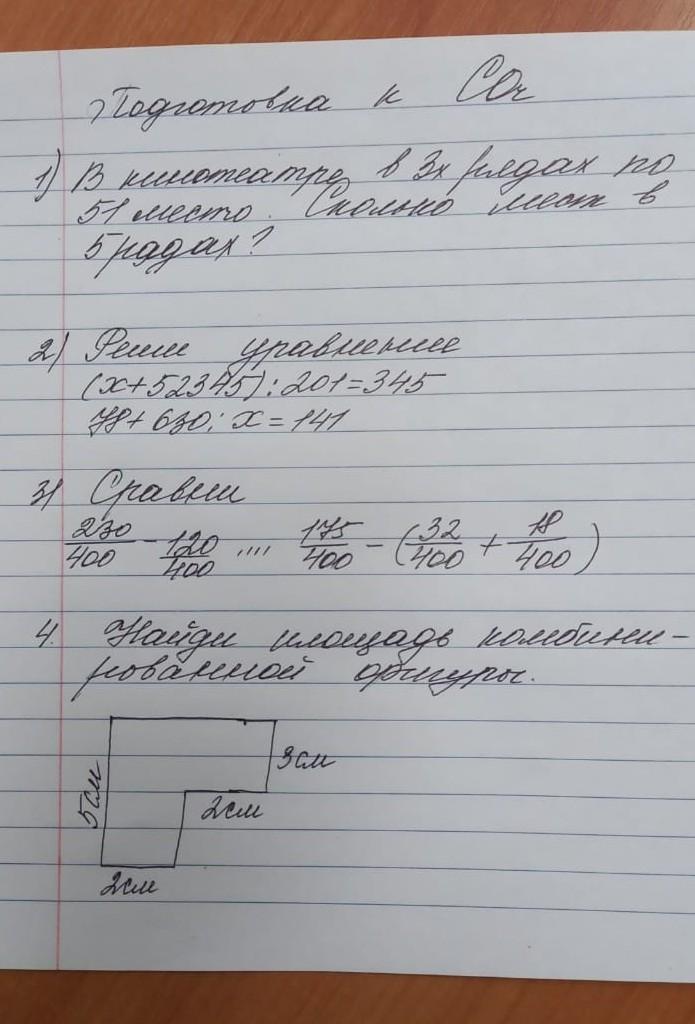 Подготовка к СОч
1) В кинотеатре в 3х рядах по
51 место. Сколько мест в
5 рядах?
2) Реши уравнение
(x+52345):201=345
78+630:x=141
3) Сравни
230/400 - 120/400 .... 175/400 - (32/400 + 18/400)
4. Найди площадь комбини-
рованной фигуры.
3см
5см
2см
2см